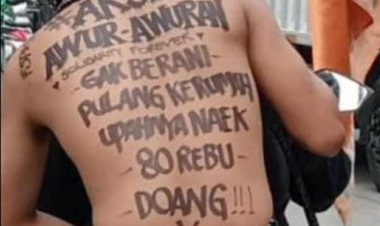 AWUR-AWURAN
SOLIDARITY FOREVER
GAK BERANI
PULANG KERUMAH
UPAHNYA NAEK
80 REBU
DOANG!!!
FSR